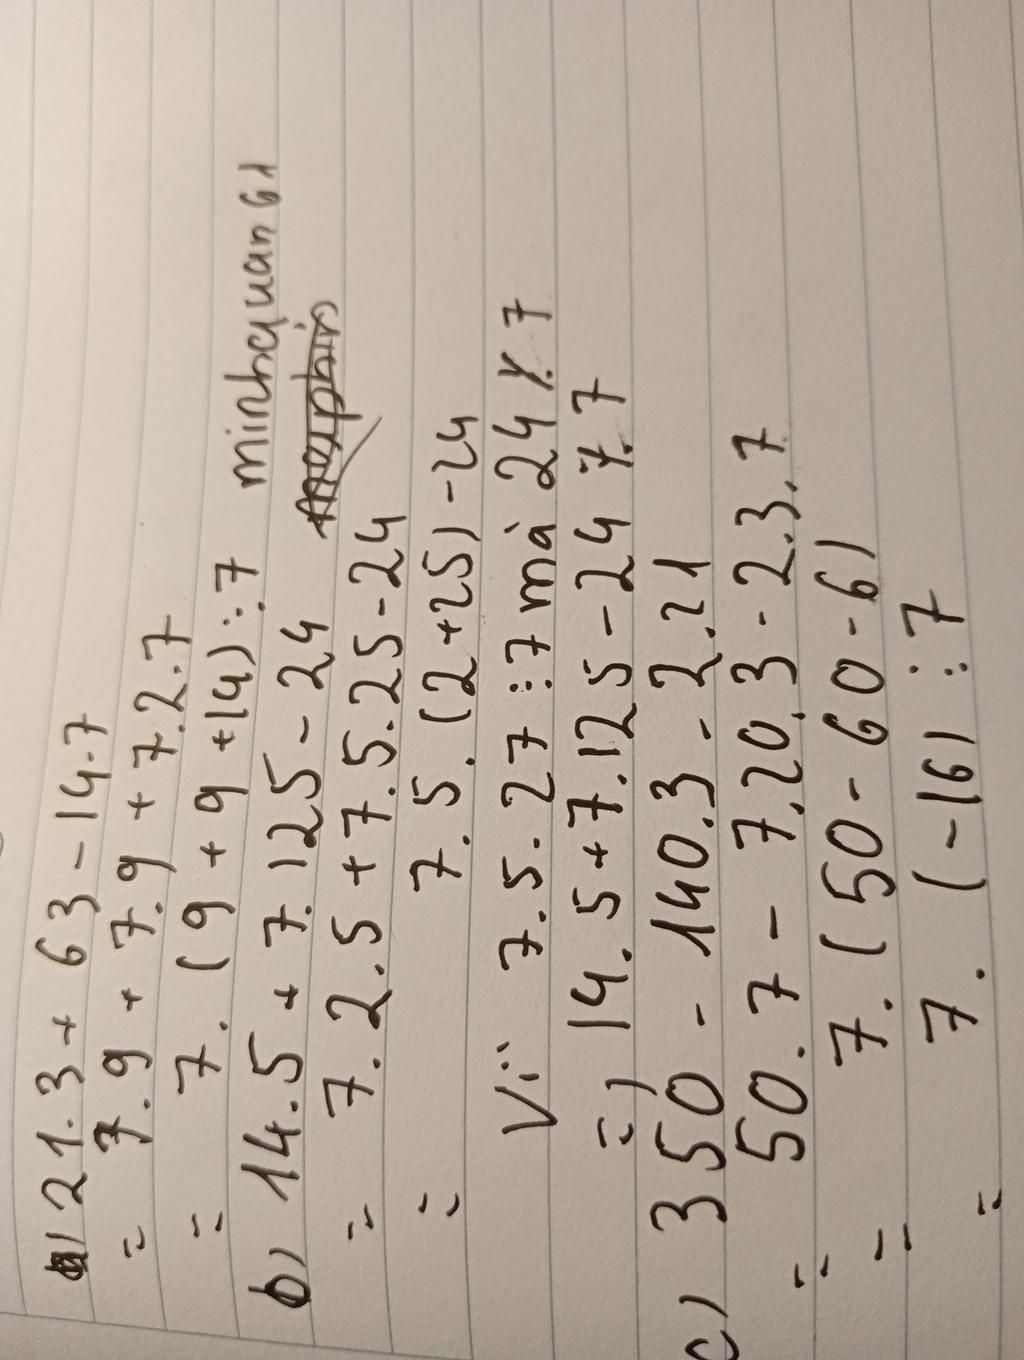 a) 21.3 + 63 - 14.7
= 7.9 + 7.9 + 7.2.7
= 7.(9 + 9 + 14) ⋮ 7
minhquan 61
b) 14.5 + 7.125 - 24
= 7.2.5 + 7.5.25 - 24
= 7.5.(2+25) - 24
Vì 7.5.27 ⋮ 7 mà 24 ⋮̸ 7
=) 14.5 + 7.125 - 24 ⋮̸ 7
c) 350 - 140.3 - 2.21
= 50.7 - 7.20.3 - 2.3.7
= 7.(50 - 60 - 6)
= 7.(-16) ⋮ 7